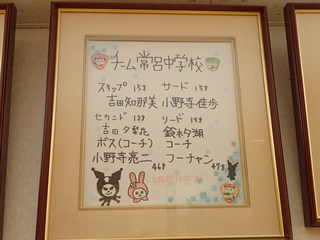 チーム常呂中学校
スキップ 15才 サード 15才
吉田知那美 小野寺佳歩
セカンド 13才 リード 15才
吉田夕梨花 鈴木夕湖
ボス(コーチ) コーチ
小野寺亮二 フーチャン
46才 47才